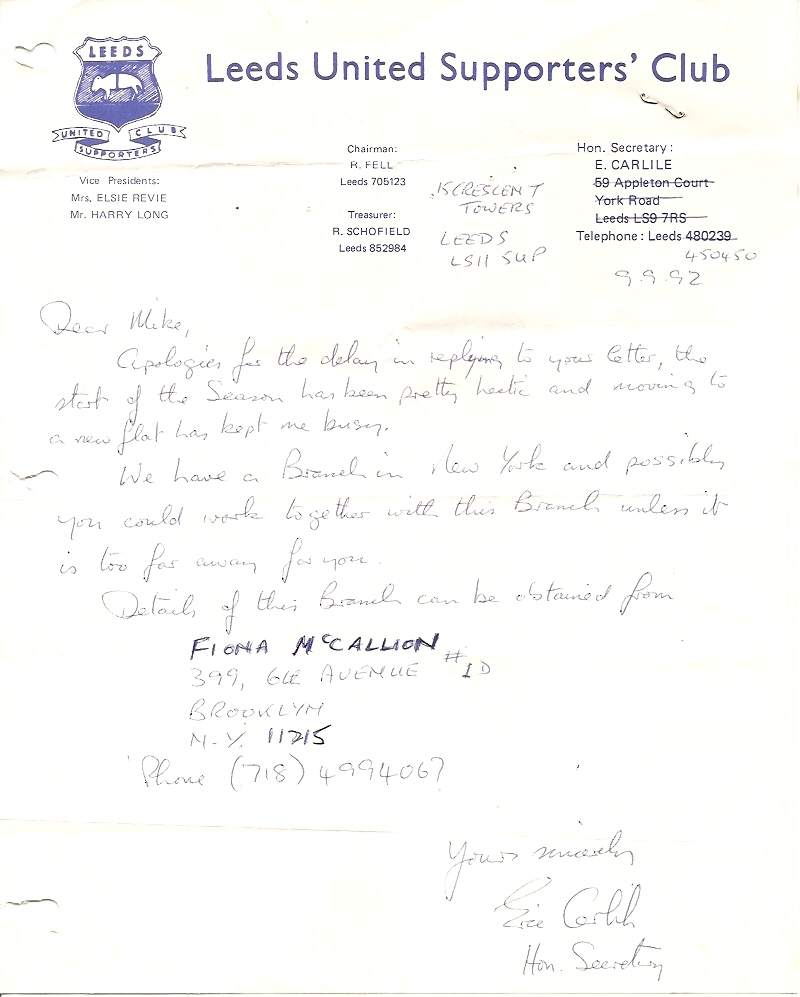 LEEDS
UNITED CLUB
SUPPORTERS
Leeds United Supporters' Club
Vice Presidents:
Mrs. ELSIE REVIE
Mr. HARRY LONG
Chairman:
R. FELL
Leeds 705123
Treasurer:
R. SCHOFIELD
Leeds 852984
15 CRESCENT
TOWERS
LEEDS
LS11 5UP
Hon. Secretary:
E. CARLILE
59 Appleton Court
York Road
Leeds LS9 7RS
Telephone: Leeds 480239
450450
9.9.92
Dear Mike,
Apologies for the delay in replying to your letter, the
start of the Season has been pretty hectic and moving to
a new flat has kept me busy.
We have a Branch in New York and possibly
you could work together with this Branch unless it
is too far away for you.
Details of this Branch can be obtained from
FIONA McCALLION
399, 6th AVENUE #1D
BROOKLYN
N.Y. 11215
Phone (718) 4994067
Yours sincerely
Eric Carlile
Hon. Secretary